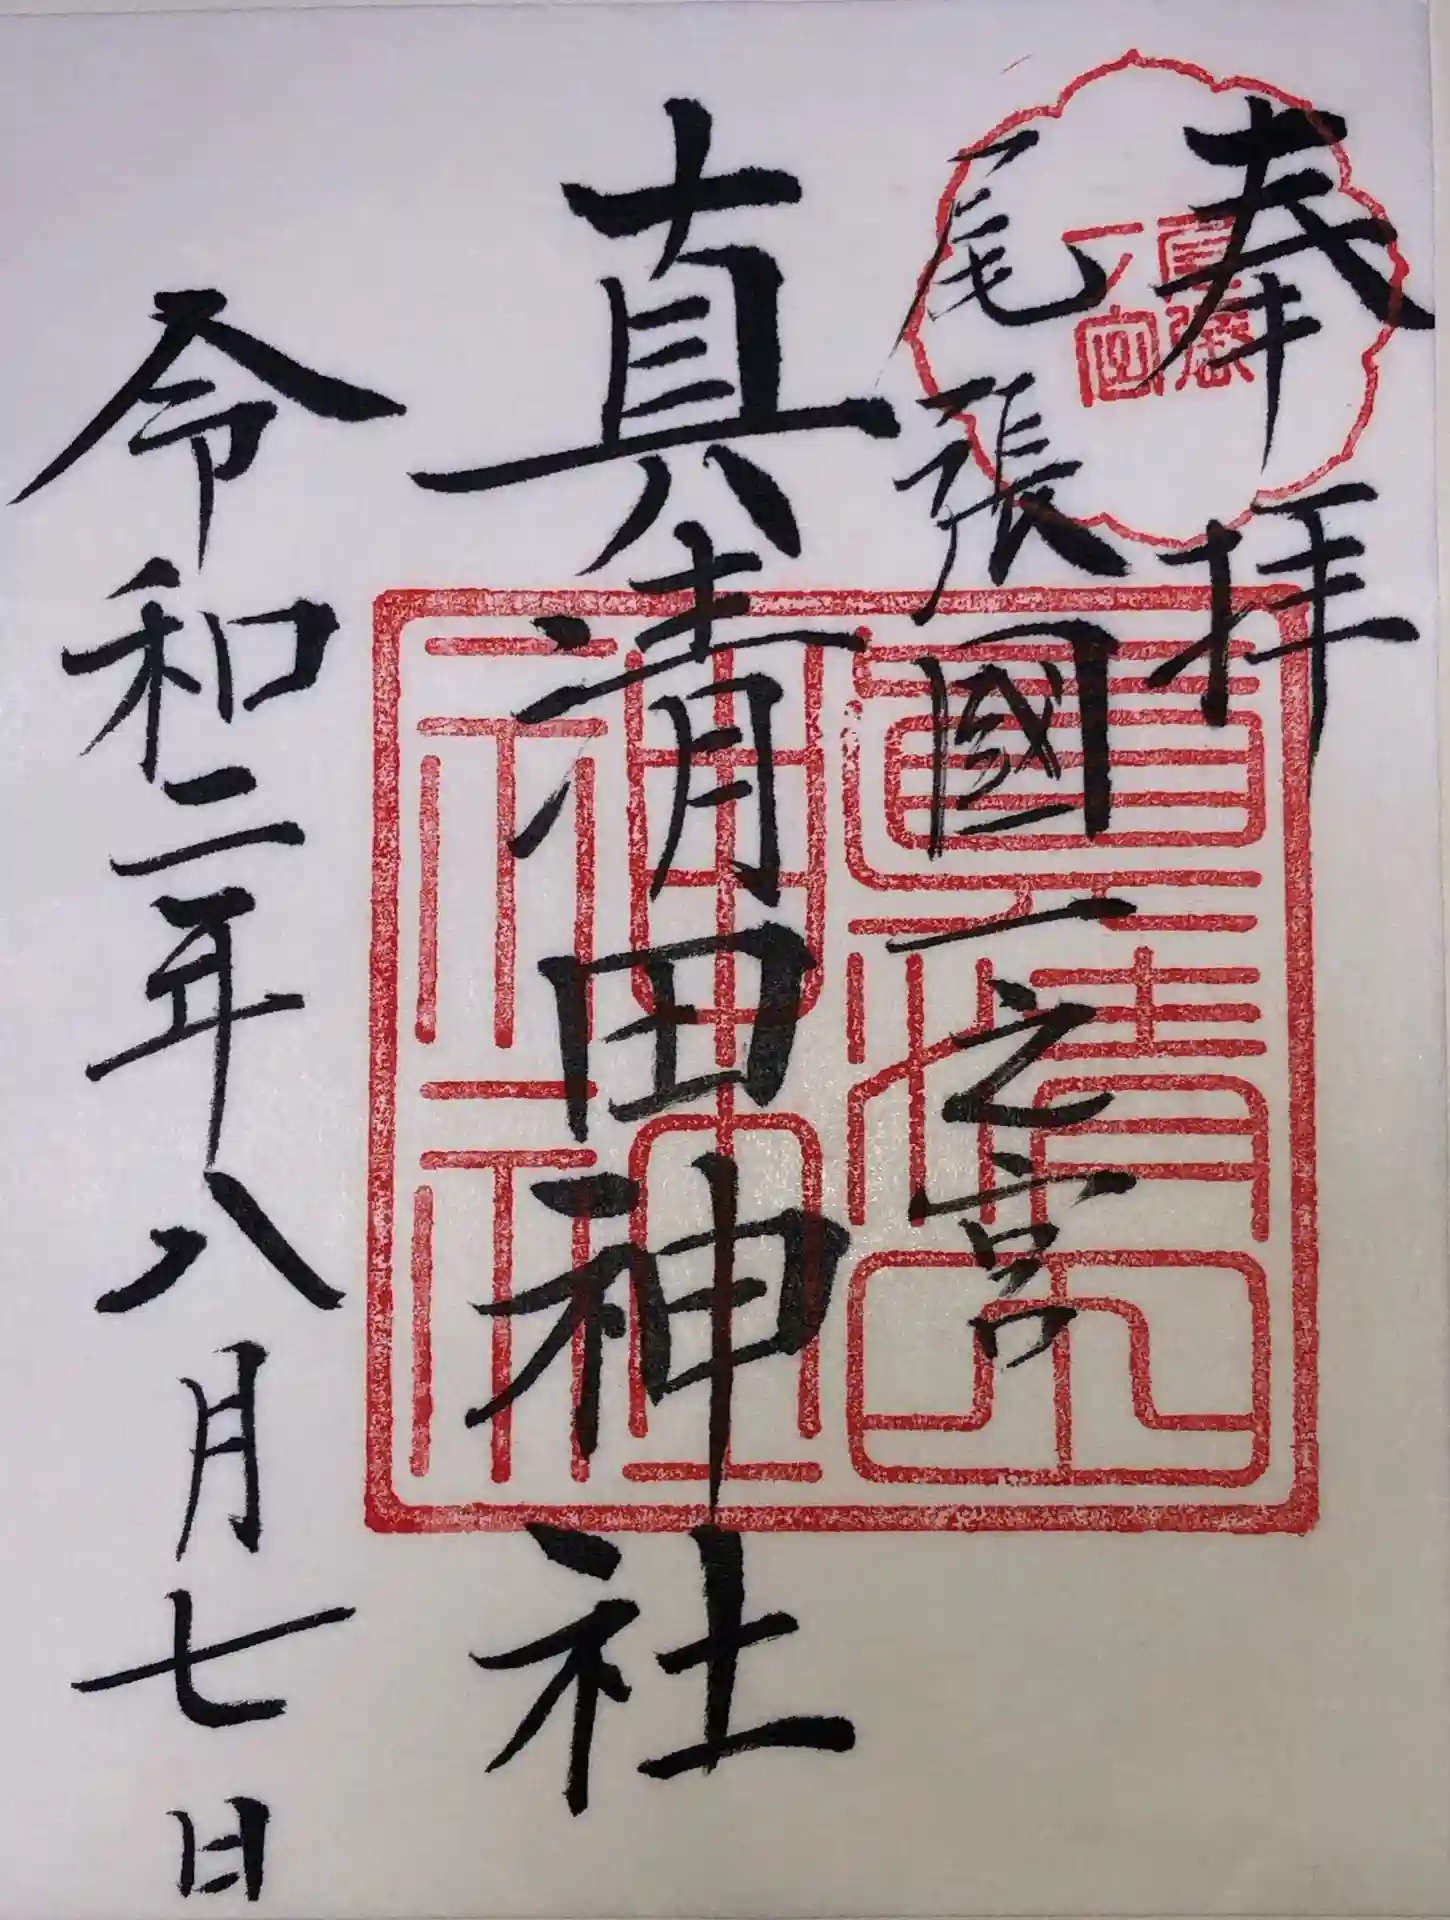 奉拝
尾張國一之宮
真清田神社
令和二年八月七日
尾張
一ノ宮
真清田
神社